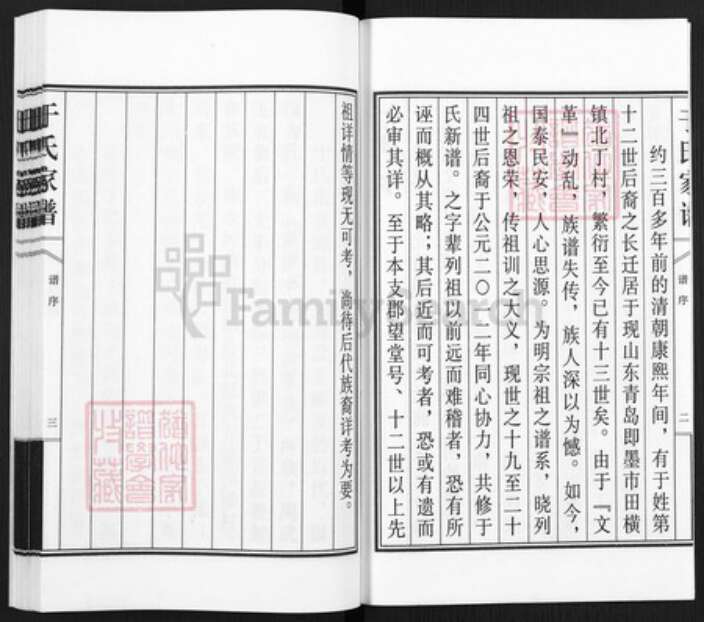 于氏家谱
谱序
二
约三百多年前的清朝康熙年间，有于姓第
十二世后裔之长迁居于现山东青岛即墨市田横
镇北丁村，繁衍至今已有十三世矣。由于『文
革』动乱，族谱失传，族人深以为憾。如今，
国泰民安，人心思源。为明宗祖之谱系，晓列
祖之恩荣，传祖训之大义，现世之十九至二十
四世后裔于公元二〇一二年同心协力，共修于
氏新谱。之字辈列祖以前远而难稽者，恐有所
诬而概从其略；其后近而可考者，恐或有遗而
必审其详。至于本支郡望堂号、十二世以上先
祖详情等现无可考，尚待后代族裔详考为要。
于氏家谱
谱序
三
FamilySearch